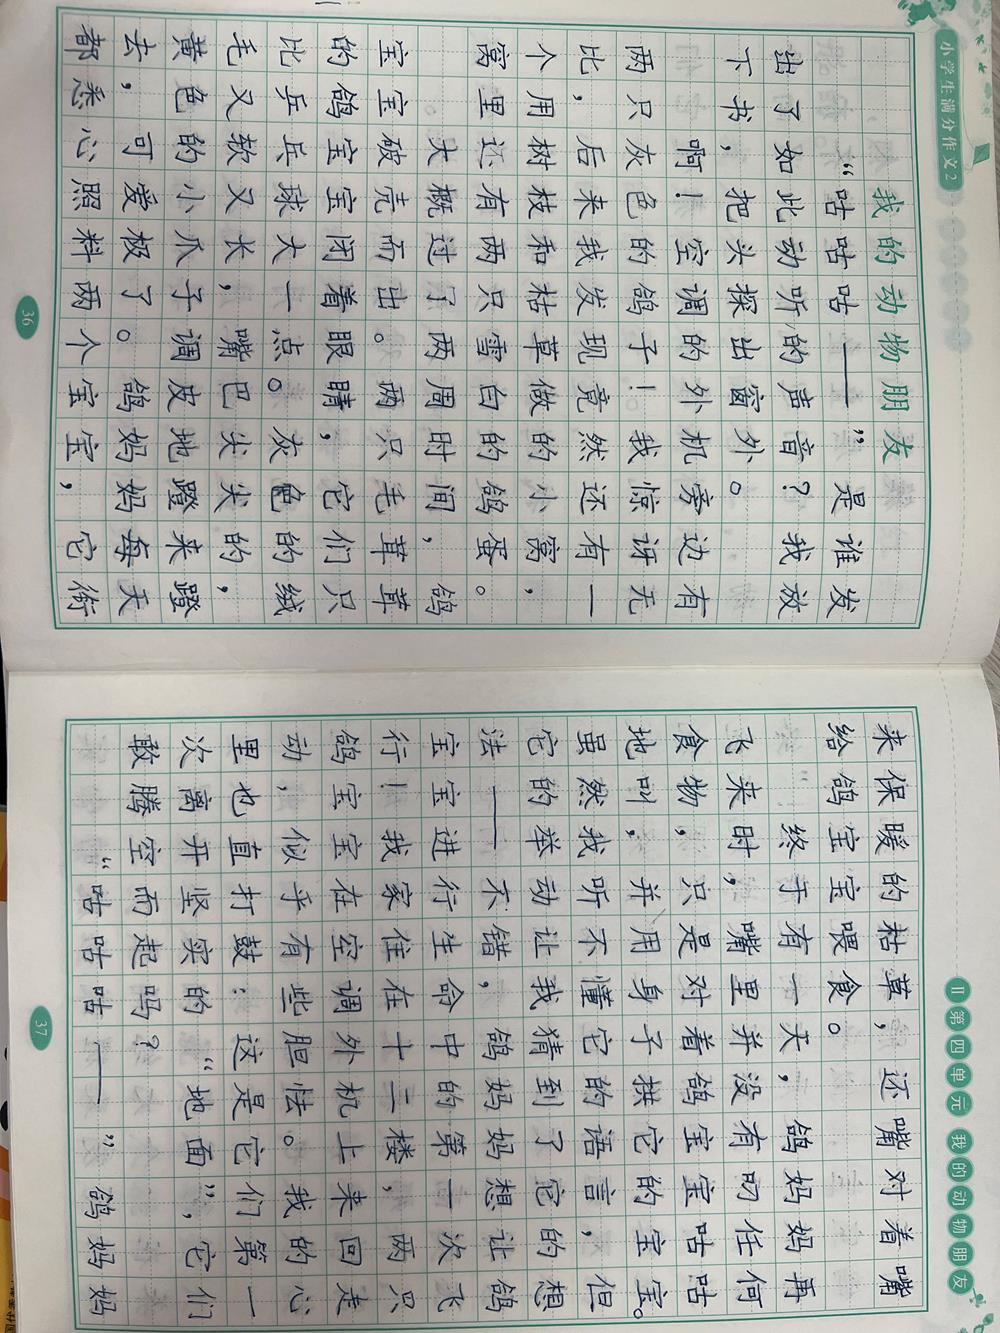 小学生满分作文2
我的动物朋友
“咕咕咕——”是谁发
出了如此动听的声音?我放
下书,把头探出窗外。
啊!空调的外机旁边有
两只灰色的鸽子!我惊讶无
比,后来我发现竟然还有一
个用树枝和枯草做的小窝,
窝里还有两只雪白的鸽蛋。
大概过了两周时间,鸽
宝宝破壳而出。两只毛茸茸
的鸽宝宝闭着眼睛,它们只
比乒乓球大一点。灰色的绒
毛又软又长,嘴巴尖尖的,
黄色的小爪子调皮地蹬来蹬
去,可爱极了。鸽妈妈每天
都悉心照料两个宝宝,它衔
36
II 第四单元 我的动物朋友
来保暖的枯草,还嘴对着嘴
给鸽宝宝喂食。
终于有一天,鸽妈妈再
飞来时,嘴里并没有叼任何
食物,只是对着鸽宝宝咕咕
地叫,并用身子拱它的宝宝。
虽然我听不懂它的语言,但
它的举动让我猜到了它的想
法——不错,鸽妈妈想让鸽
宝宝进行生命中的第一次飞
行!我家住在十二楼,两只
鸽宝宝在空调外机上来回走
动,似乎有些胆怯。我的心
里也直打鼓:这是它们第一
次离开坚实的“地面”,它们
敢腾空而起吗?
“咕咕咕——”鸽妈妈
37